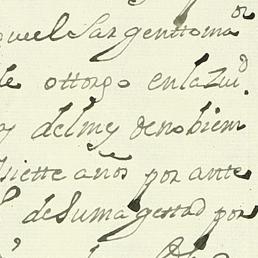 quel Sargento maor
le ottorgo en la Ziud.
y del mes de nobiem
siette años por ante
de Su magestad por